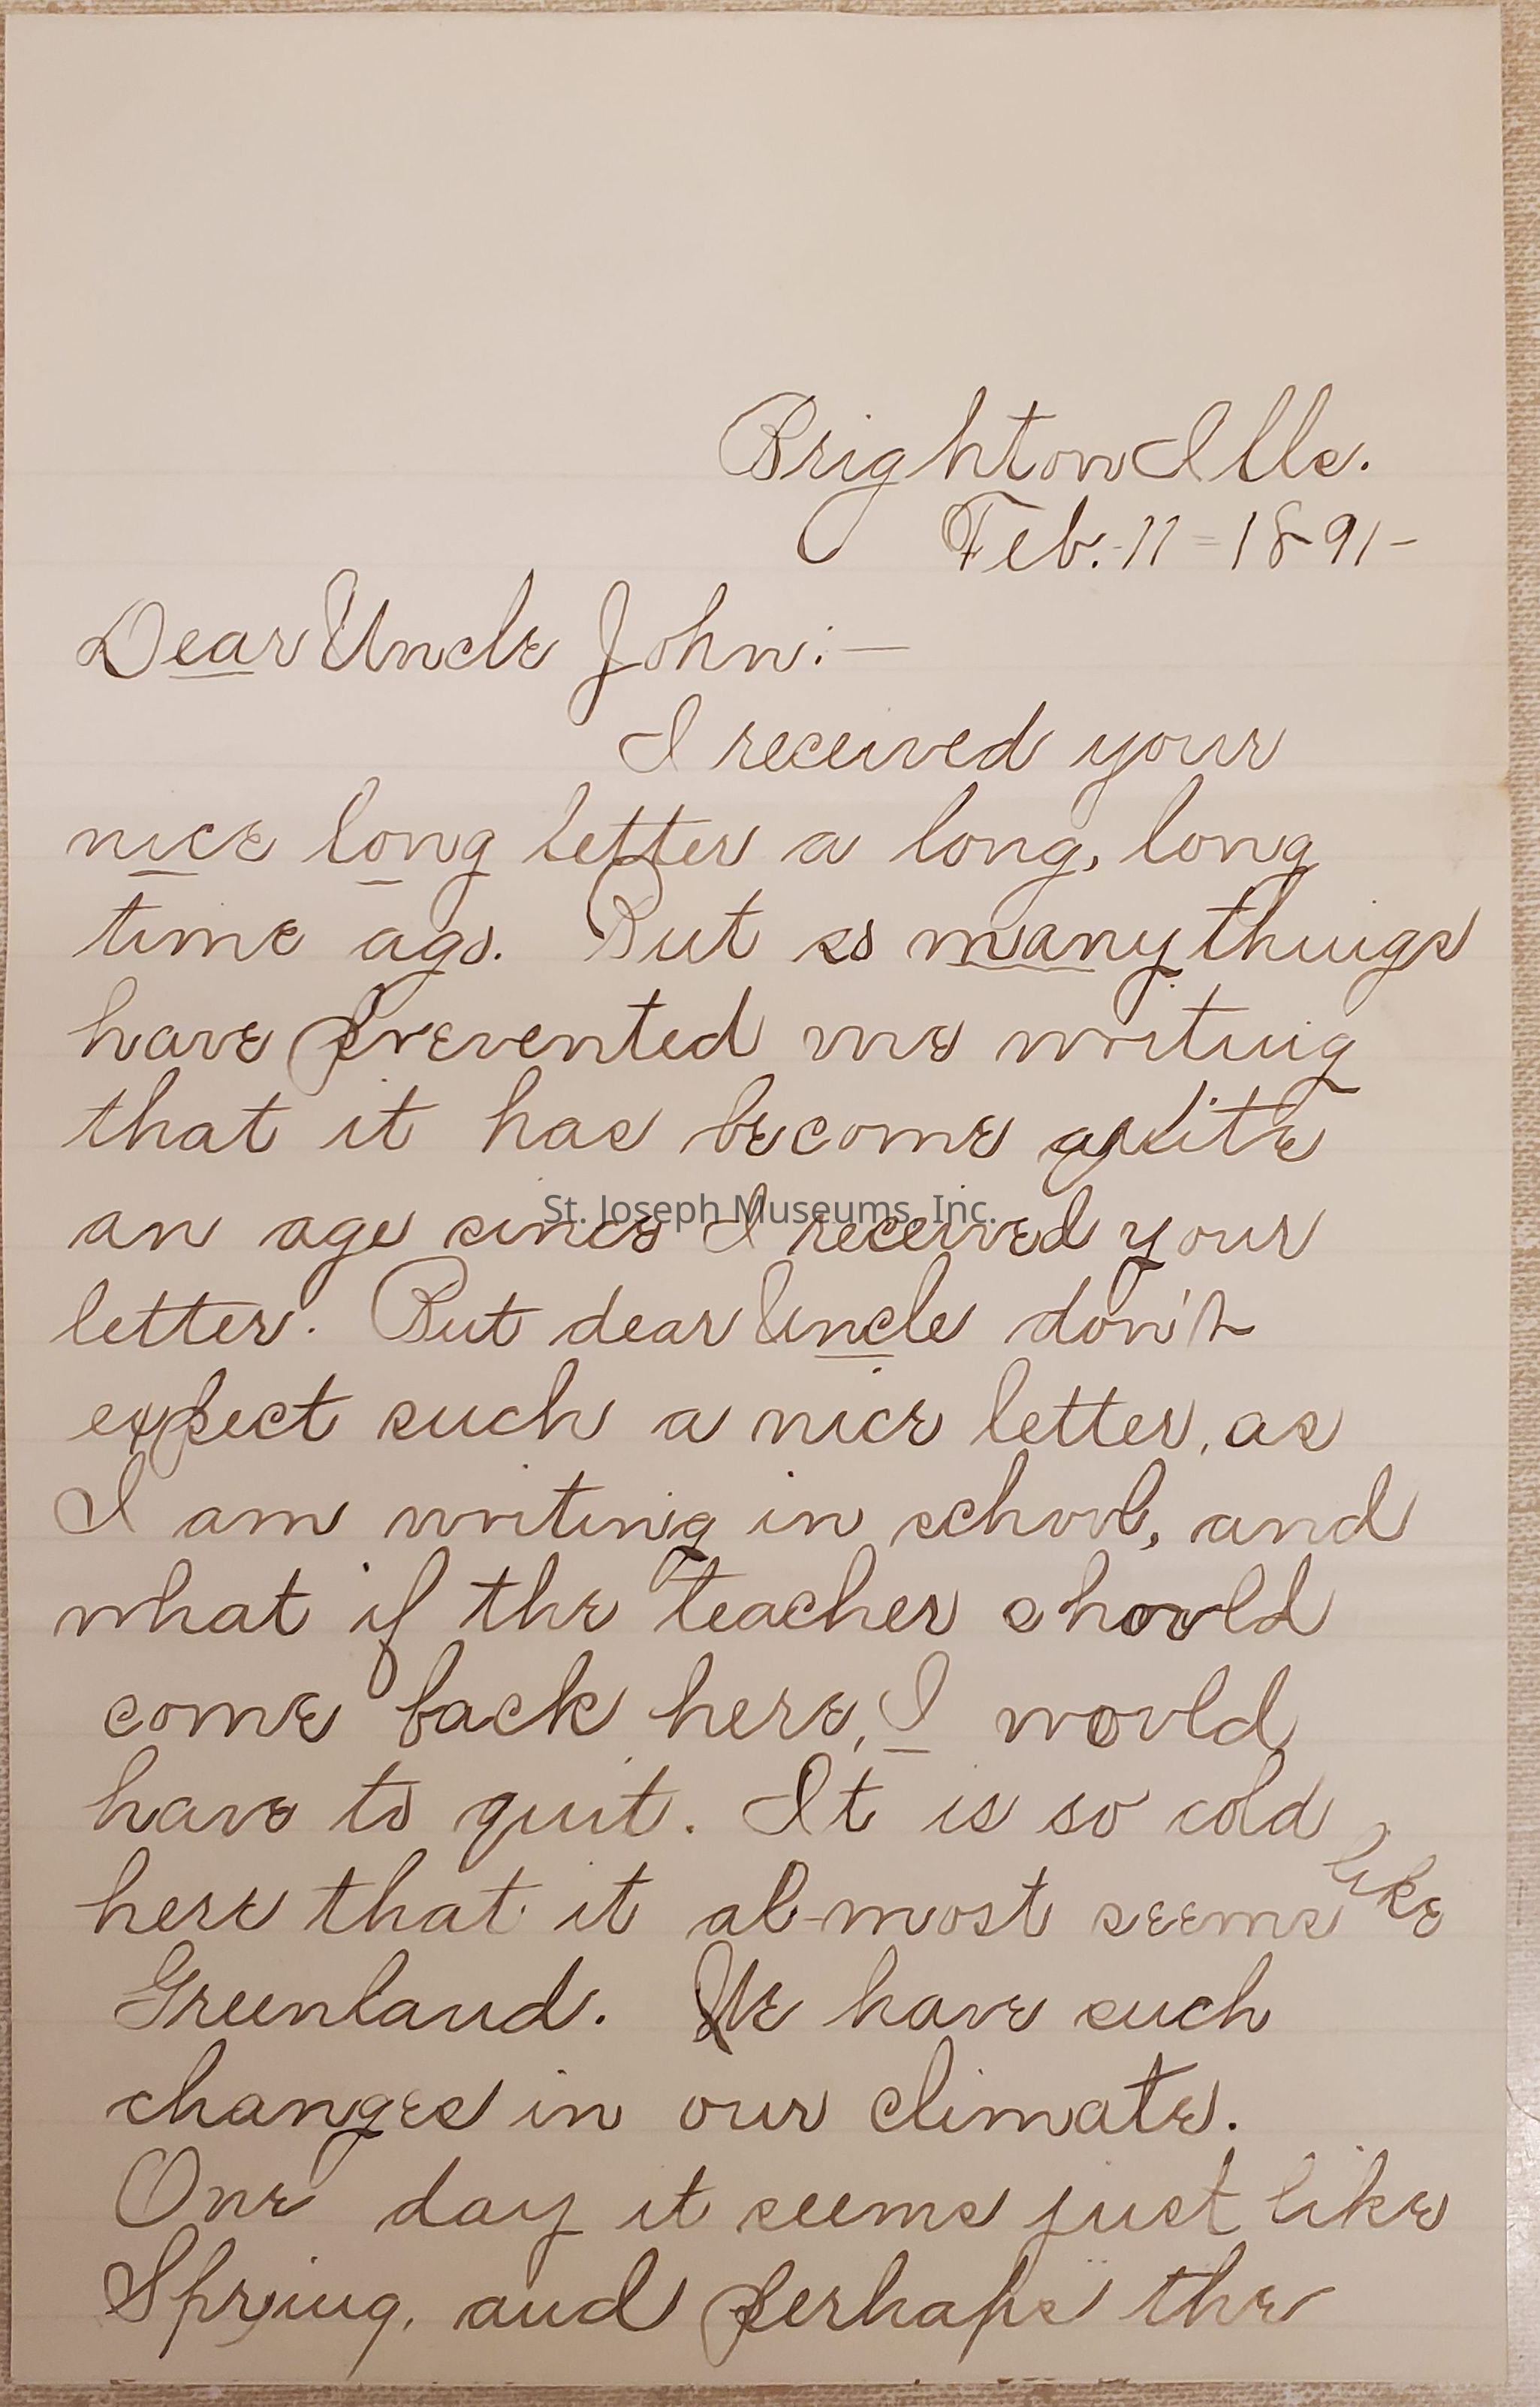 Brighton Ills.
Feb. 11 = 1891 -
Dear Uncle John:—
I received your
nice long letter a long, long
time ago. But so many things
have prevented me writing
that it has become quite
an age since I received your
St. Joseph Museums, Inc.
letter. But dear Uncle don't
expect such a nice letter, as
I am writing in school, and
what if the teacher should
come back here, I would
have to quit. It is so cold
here that it al-most seems like
Greenland. We have such
changes in our climate.
One day it seems just like
Spring, and perhaps the